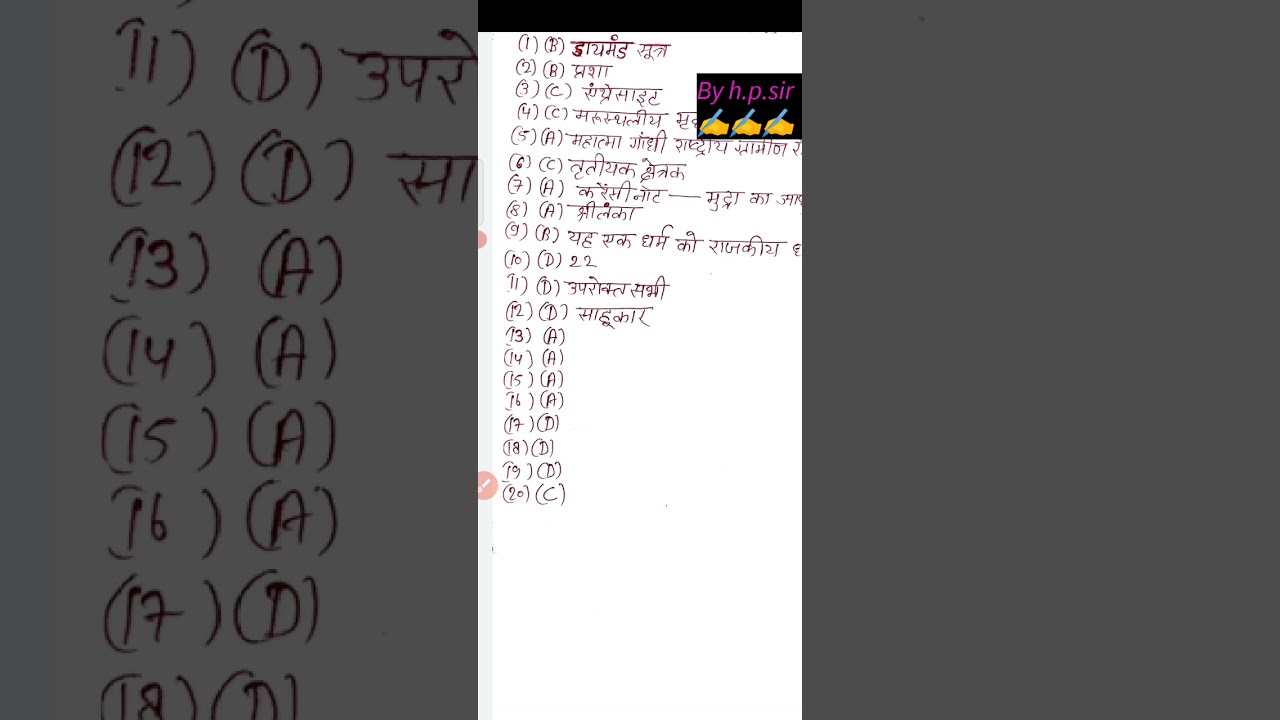 (1) (B) डायमंड सूत्र
(2) (B) प्रशा
By h.p.sir
(3) (C) एंथ्रेसाइट
(4) (C) मरूस्थलीय
(5) (A) महात्मा गांधी राष्ट्रीय ग्रामीण
(6) (C) तृतीयक क्षेत्रक
(7) (A) करेंसीनोट — मुद्रा का
(8) (A) श्रीलंका
(9) (B) यह एक धर्म को राजकीय
(10) (D) 22
(11) (D) उपरोक्त सभी
(12) (D) साहूकार
(13) (A)
(14) (A)
(15) (A)
(16) (A)
(17) (D)
(18) (D)
(19) (D)
(20) (C)
11) (D) उपरो
(12) (D) सा
(13) (A)
(14) (A)
(15) (A)
(16) (A)
(17) (D)
(18) (D)